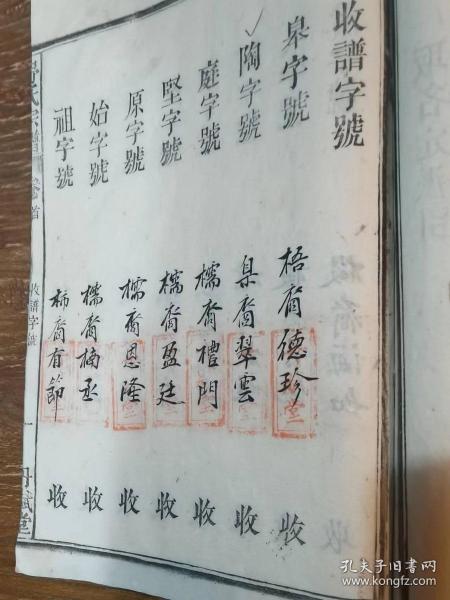 收譜字號
皋字號 梧裔德珍 收
陶字號 臬裔翠雲 收
庭字號 檽裔禮門 收
堅字號 檽裔盈廷 收
原字號 檽裔恩隆 收
始字號 檽裔楠丞 收
祖字號 柿裔有節 收
氏宗譜 卷首
收譜字號
一
孔夫子旧书网
www.kongfz.com